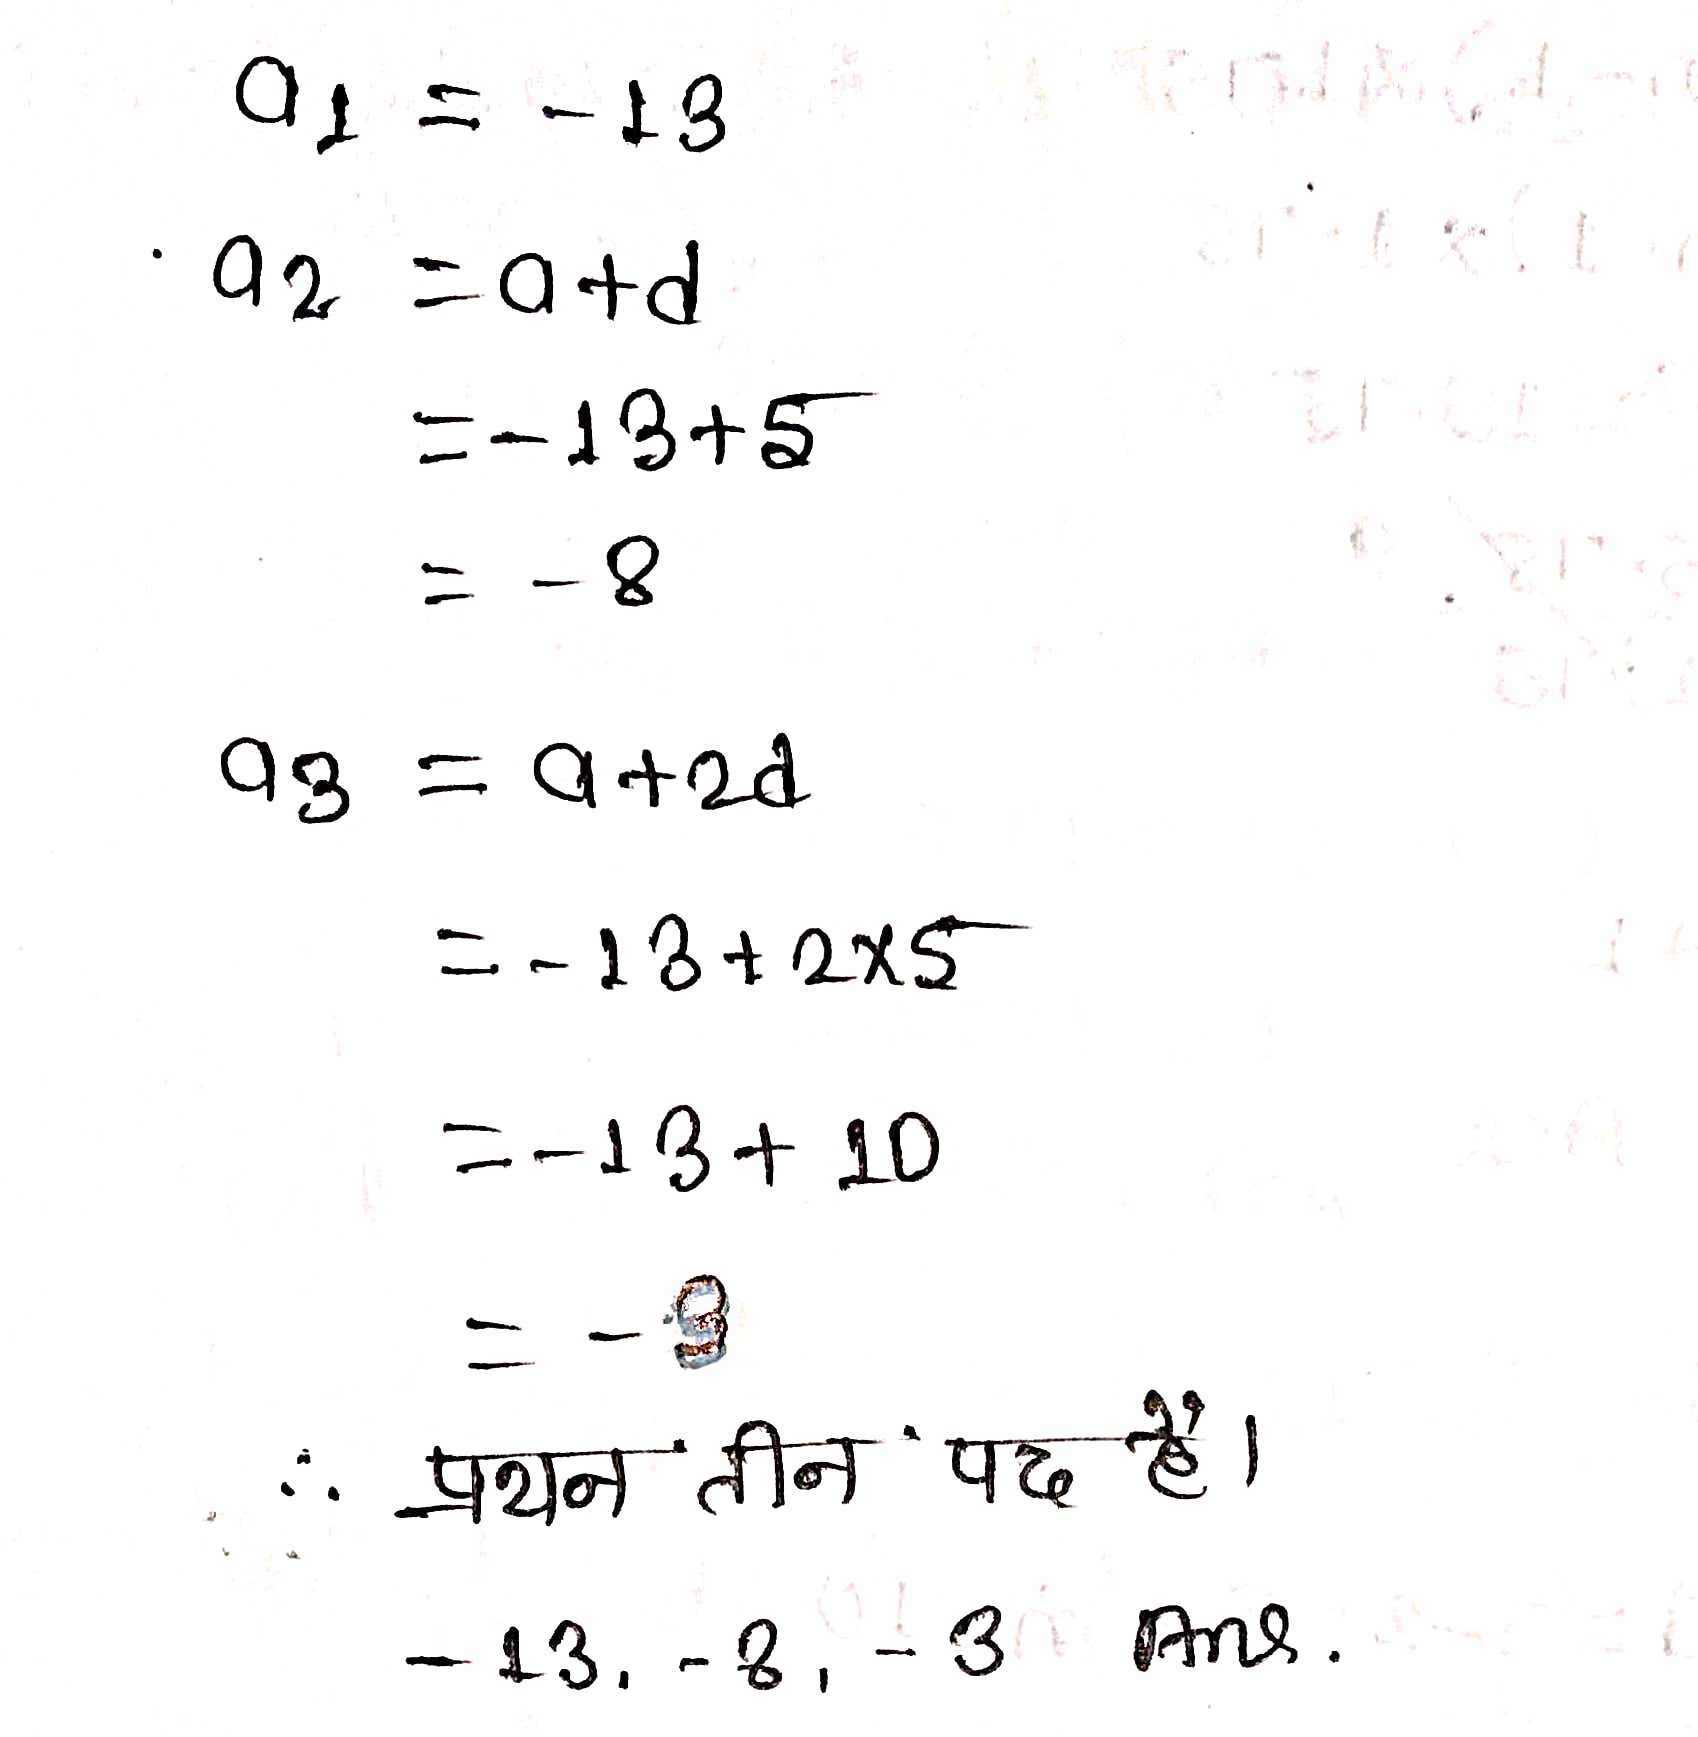 a1 = -13
a2 = a+d
= -13+5
= -8
a3 = a+2d
= -13+2×5
= -13+10
= -3
∴ प्रथन तीन पद हैं।
-13, -8, -3 Ans.